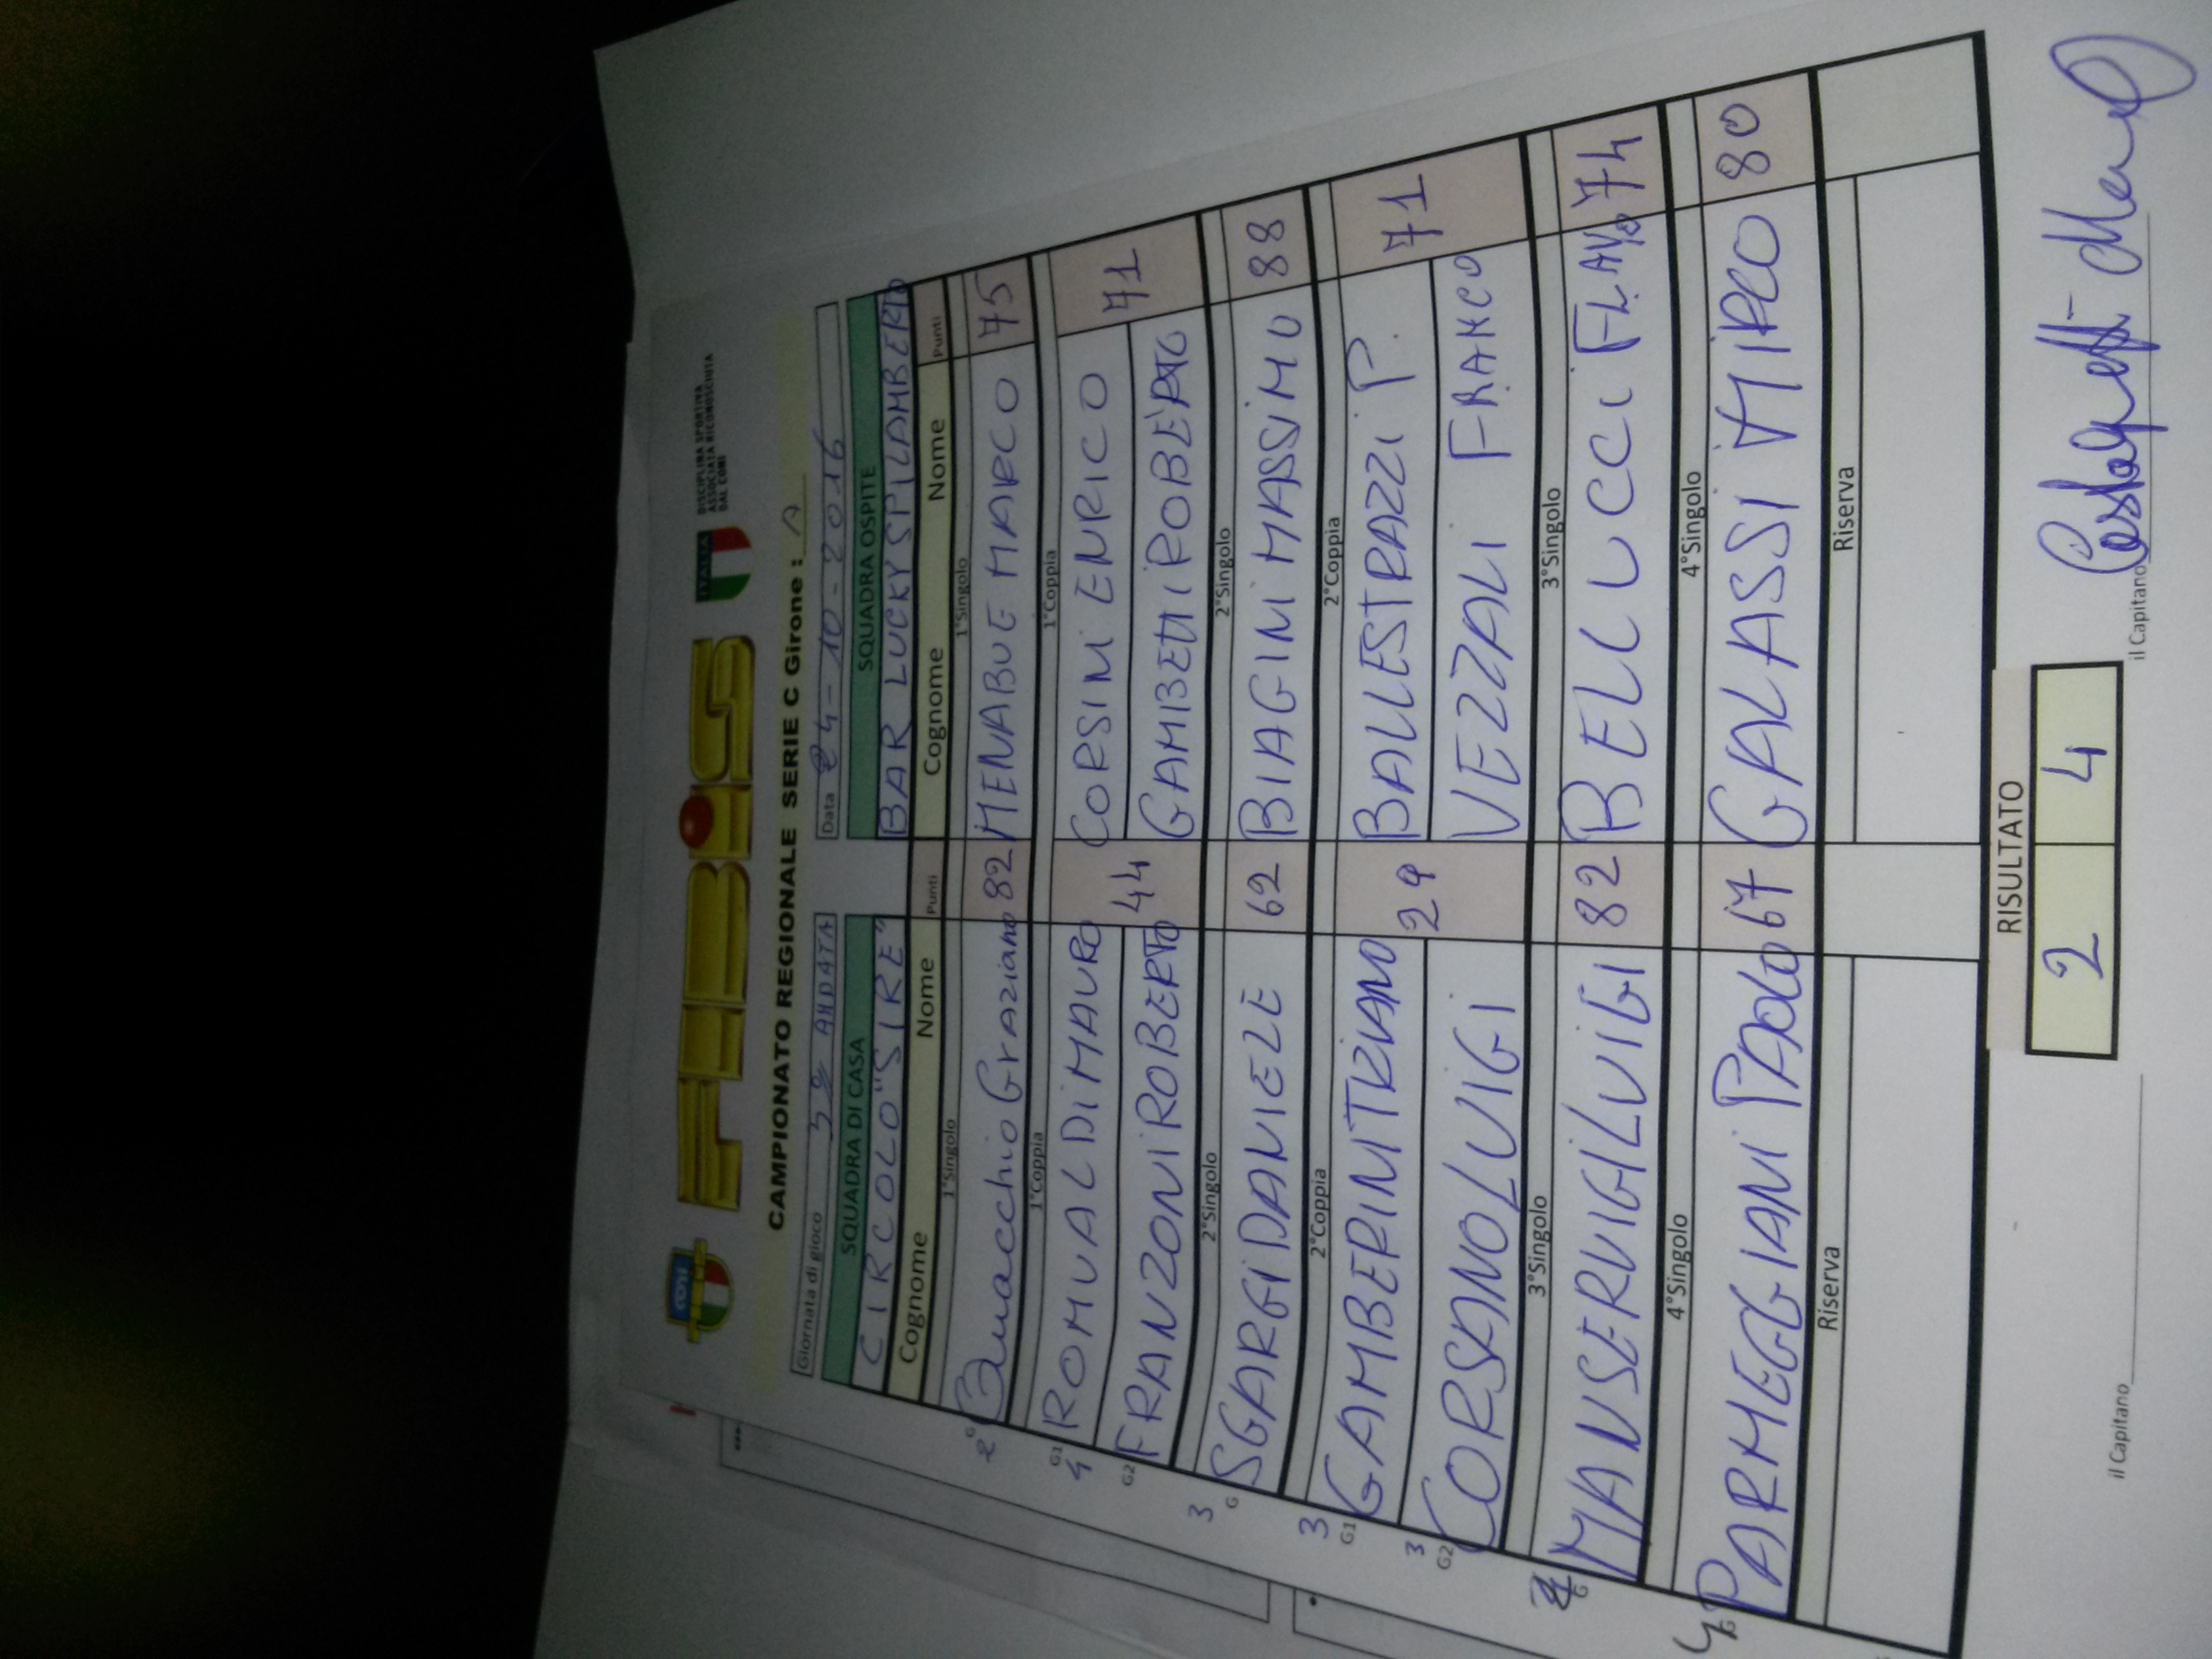 CONI
FIBiS
ITALIA
DISCIPLINA SPORTIVA
ASSOCIATA RICONOSCIUTA
DAL CONI
CAMPIONATO REGIONALE SERIE C Girone : A
Giornata di gioco 3ª ANDATA Data 24-10-2016
SQUADRA DI CASA SQUADRA OSPITE
CIRCOLO "SIRE" BAR LUCKY SPILAMBERTO
Cognome Nome Punti Cognome Nome Punti
1°Singolo 1°Singolo
2 G Graziano 82 MENABUE MARCO 75
1°Coppia 1°Coppia
G1 ROMUALDI MAURO 44 CORSINI ENRICO 71
4
G2 FRANZONI ROBERTO GAMBETTI ROBERTO
2°Singolo 2°Singolo
3 G SGARGI DANIELE 62 BIAGINI MASSIMO 88
2°Coppia 2°Coppia
3 G1 GAMBERINI TRIANO 29 BALLESTRAZZI P. 71
3 G2 CORSANO LUIGI VEZZALI FRANCO
3°Singolo 3°Singolo
G MANSERVIGI LUIGI 82 BELLUCCI FLAVio 74
4°Singolo 4°Singolo
4 G PARMEGGIANI PAOLO 67 GALASSI MIRCO 80
Riserva Riserva
RISULTATO
2 4
il Capitano il Capitano